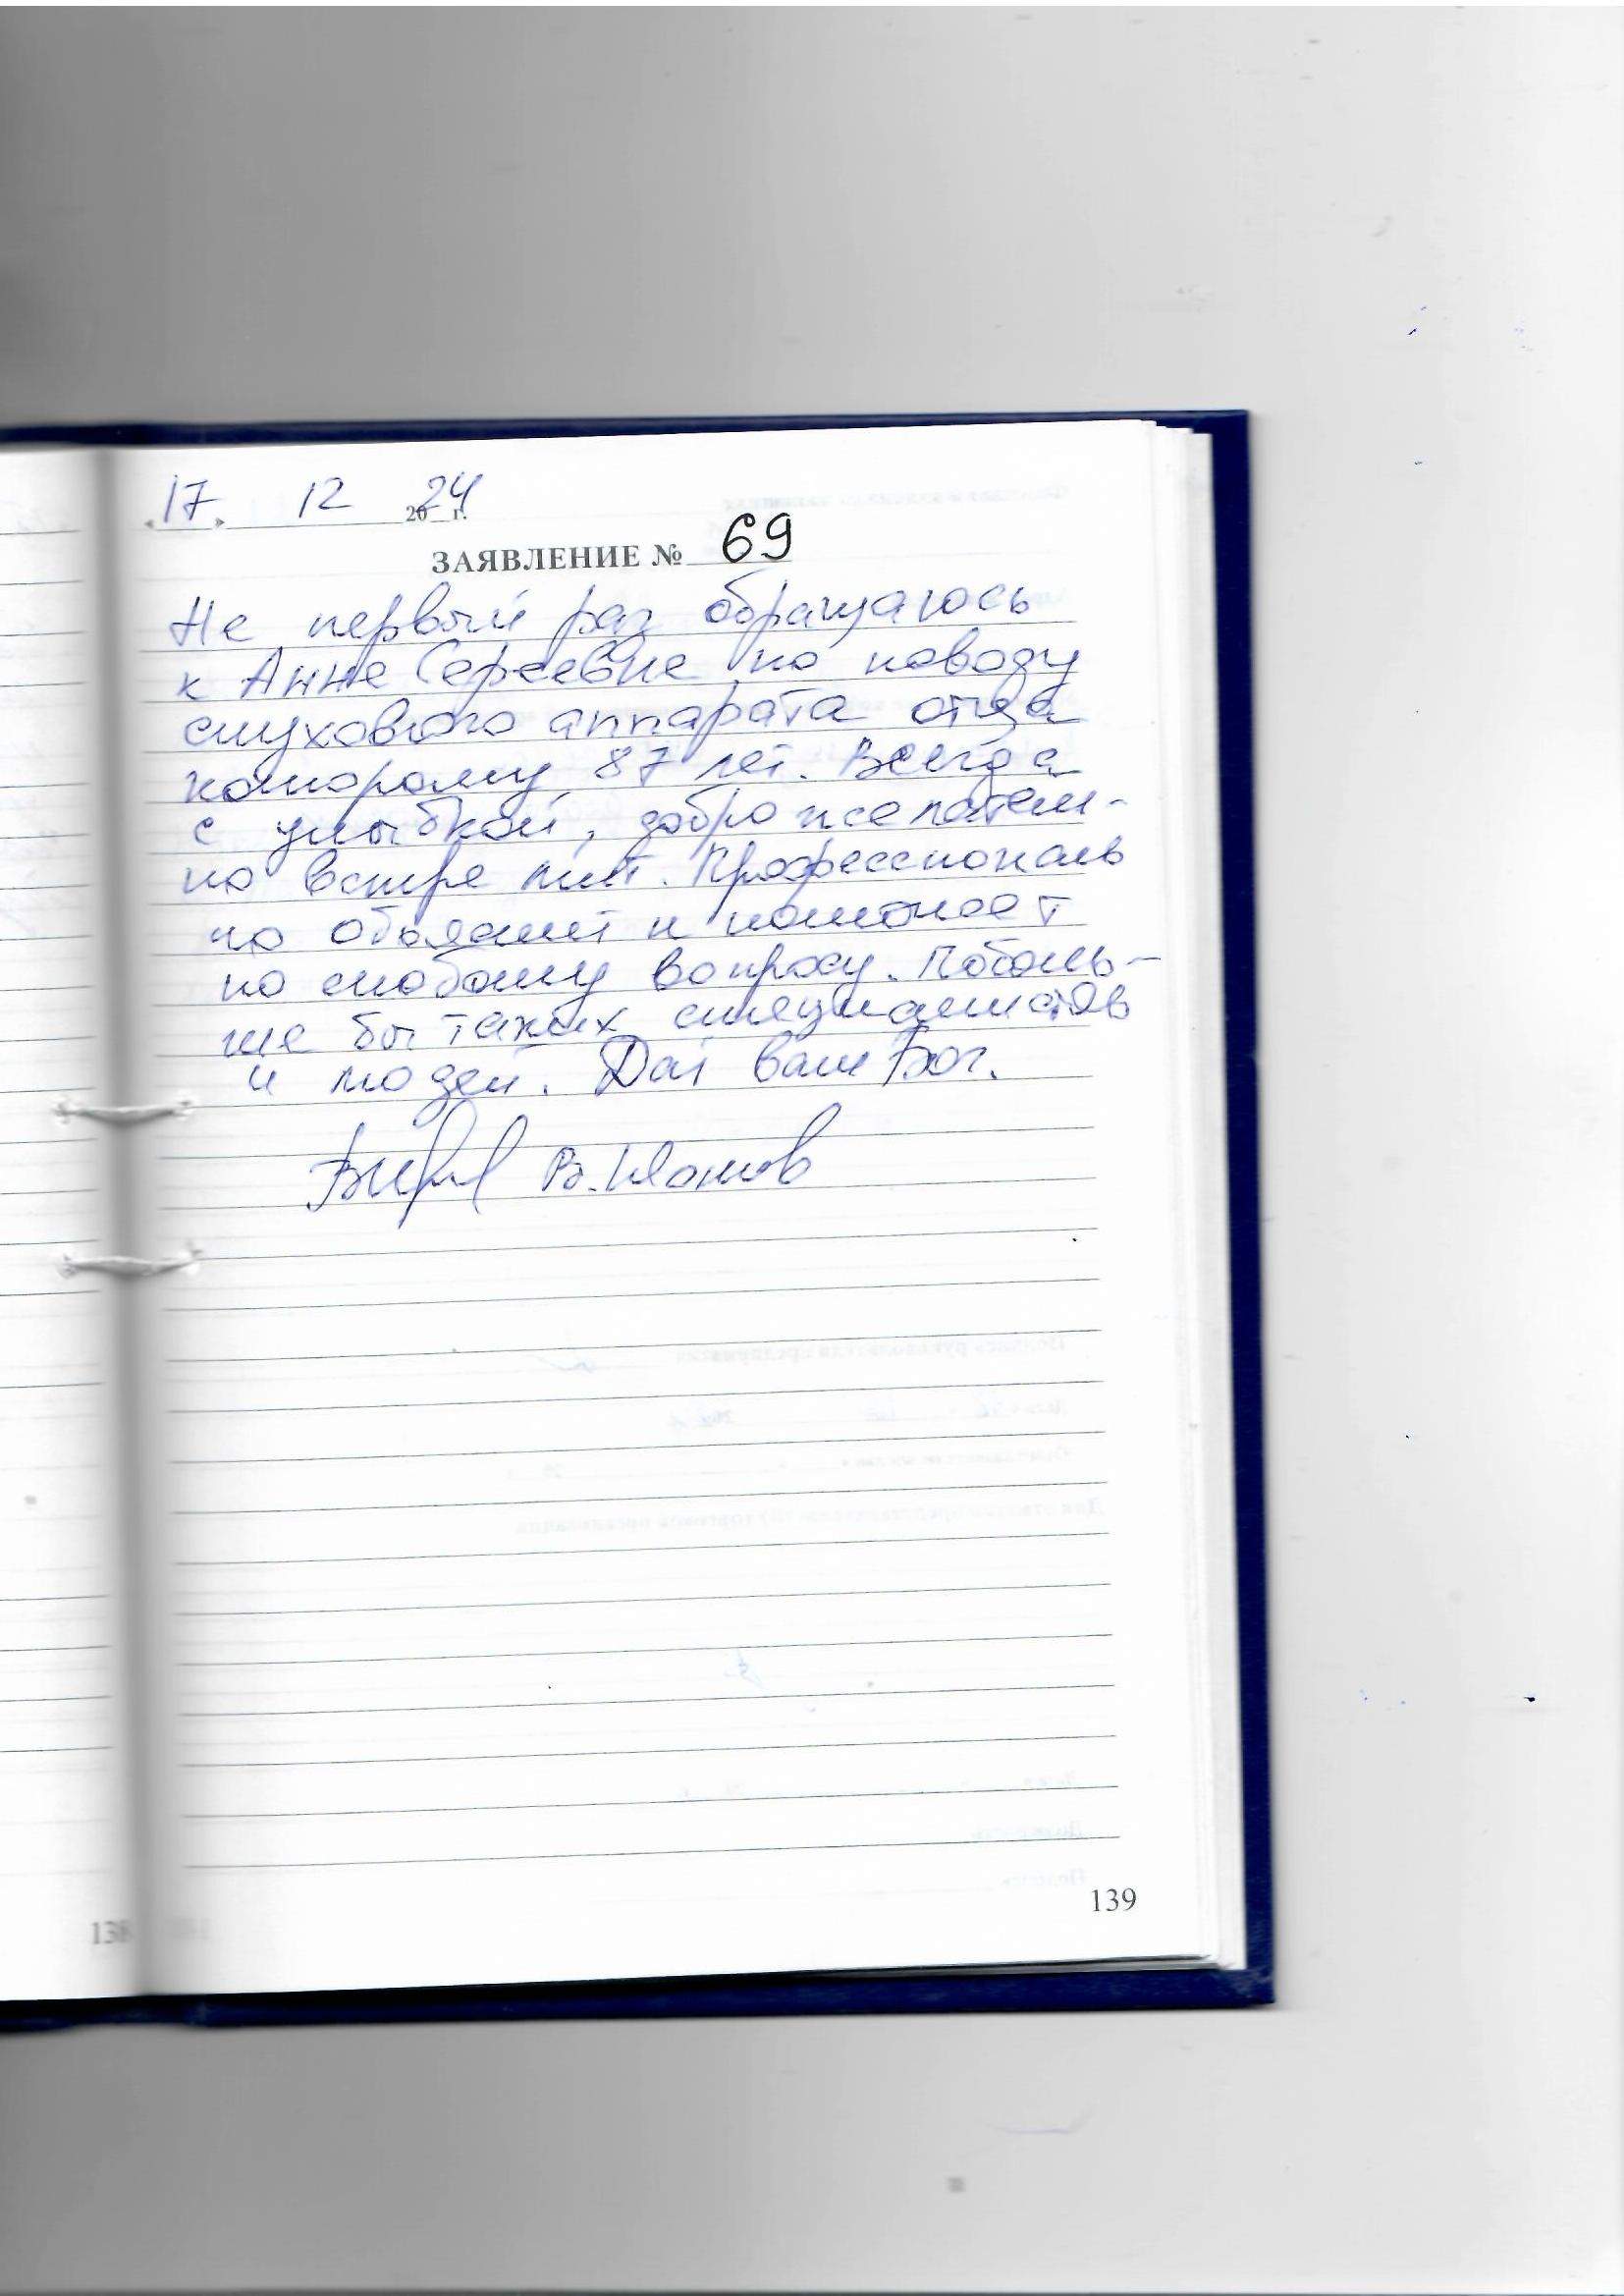 «17» 12 2024 г.
ЗАЯВЛЕНИЕ № 69
Не первый раз обращаюсь
к Анне Сергеевне по поводу
слухового аппарата отца
которому 87 лет. Всегда
с улыбкой, доброжелатель-
но встретит. Профессиональ
но объяснит и поможет
по любому вопросу. Поболь-
ше бы таких специалистов
и людей. Дай вам Бог.
139
138